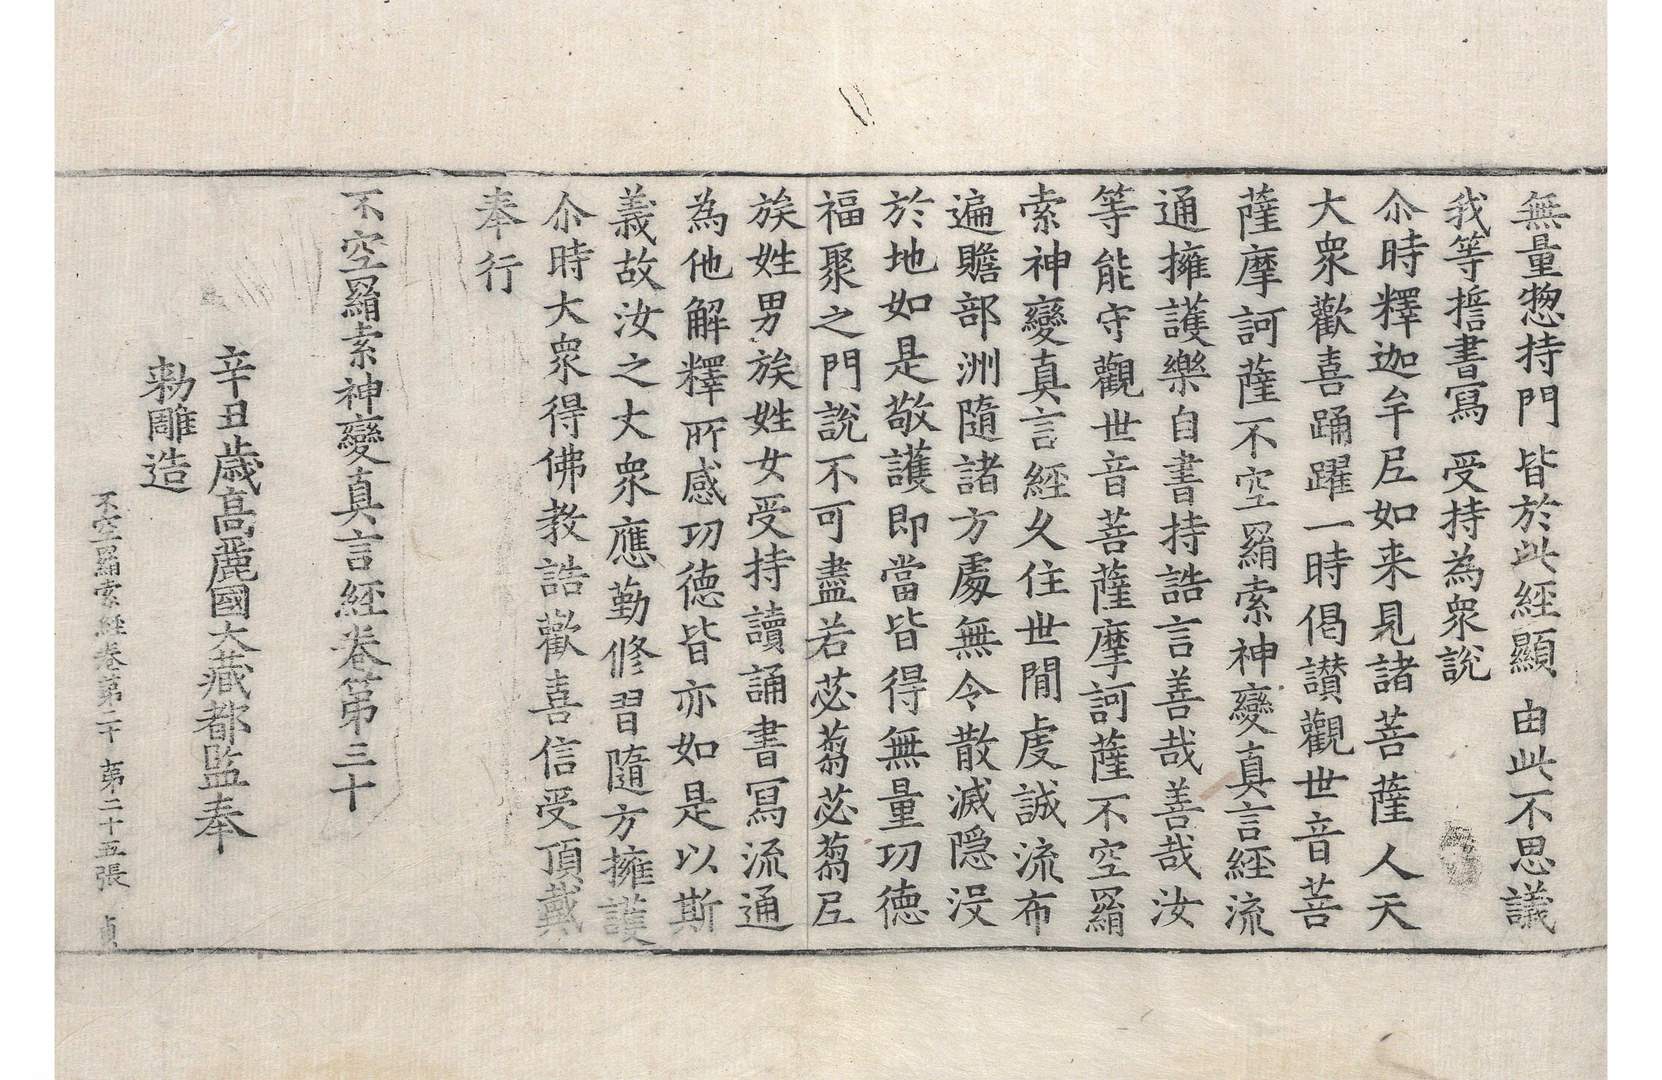 無量惣持門 皆於此經顯 由此不思議
我等㨗書寫 受持為衆說
尒時釋迦牟尼如来見諸菩薩人天
大衆歡喜踊躍一時偈讃觀世音菩
薩摩訶薩不空羂索神變真言經流
通擁護樂自書持誥言善哉善哉汝
等能守觀世音菩薩摩訶薩不空羂
索神變真言經久住世間虔誠流布
遍贍部洲隨諸方處無令散滅隱没
於地如是敬護即當皆得無量功德
福聚之門說不可盡若苾蒭苾蒭尼
族姓男族姓女受持讀誦書寫流通
為他解釋所感功德皆亦如是以斯
義故汝之大衆應勤修習隨方擁護
尒時大衆得佛教誥歡喜信受頂戴
奉行
不空羂索神變真言經卷第三十
辛丑歳高麗國大藏都監奉
勅雕造
不空羂索經卷第三十 第二十五張 貞